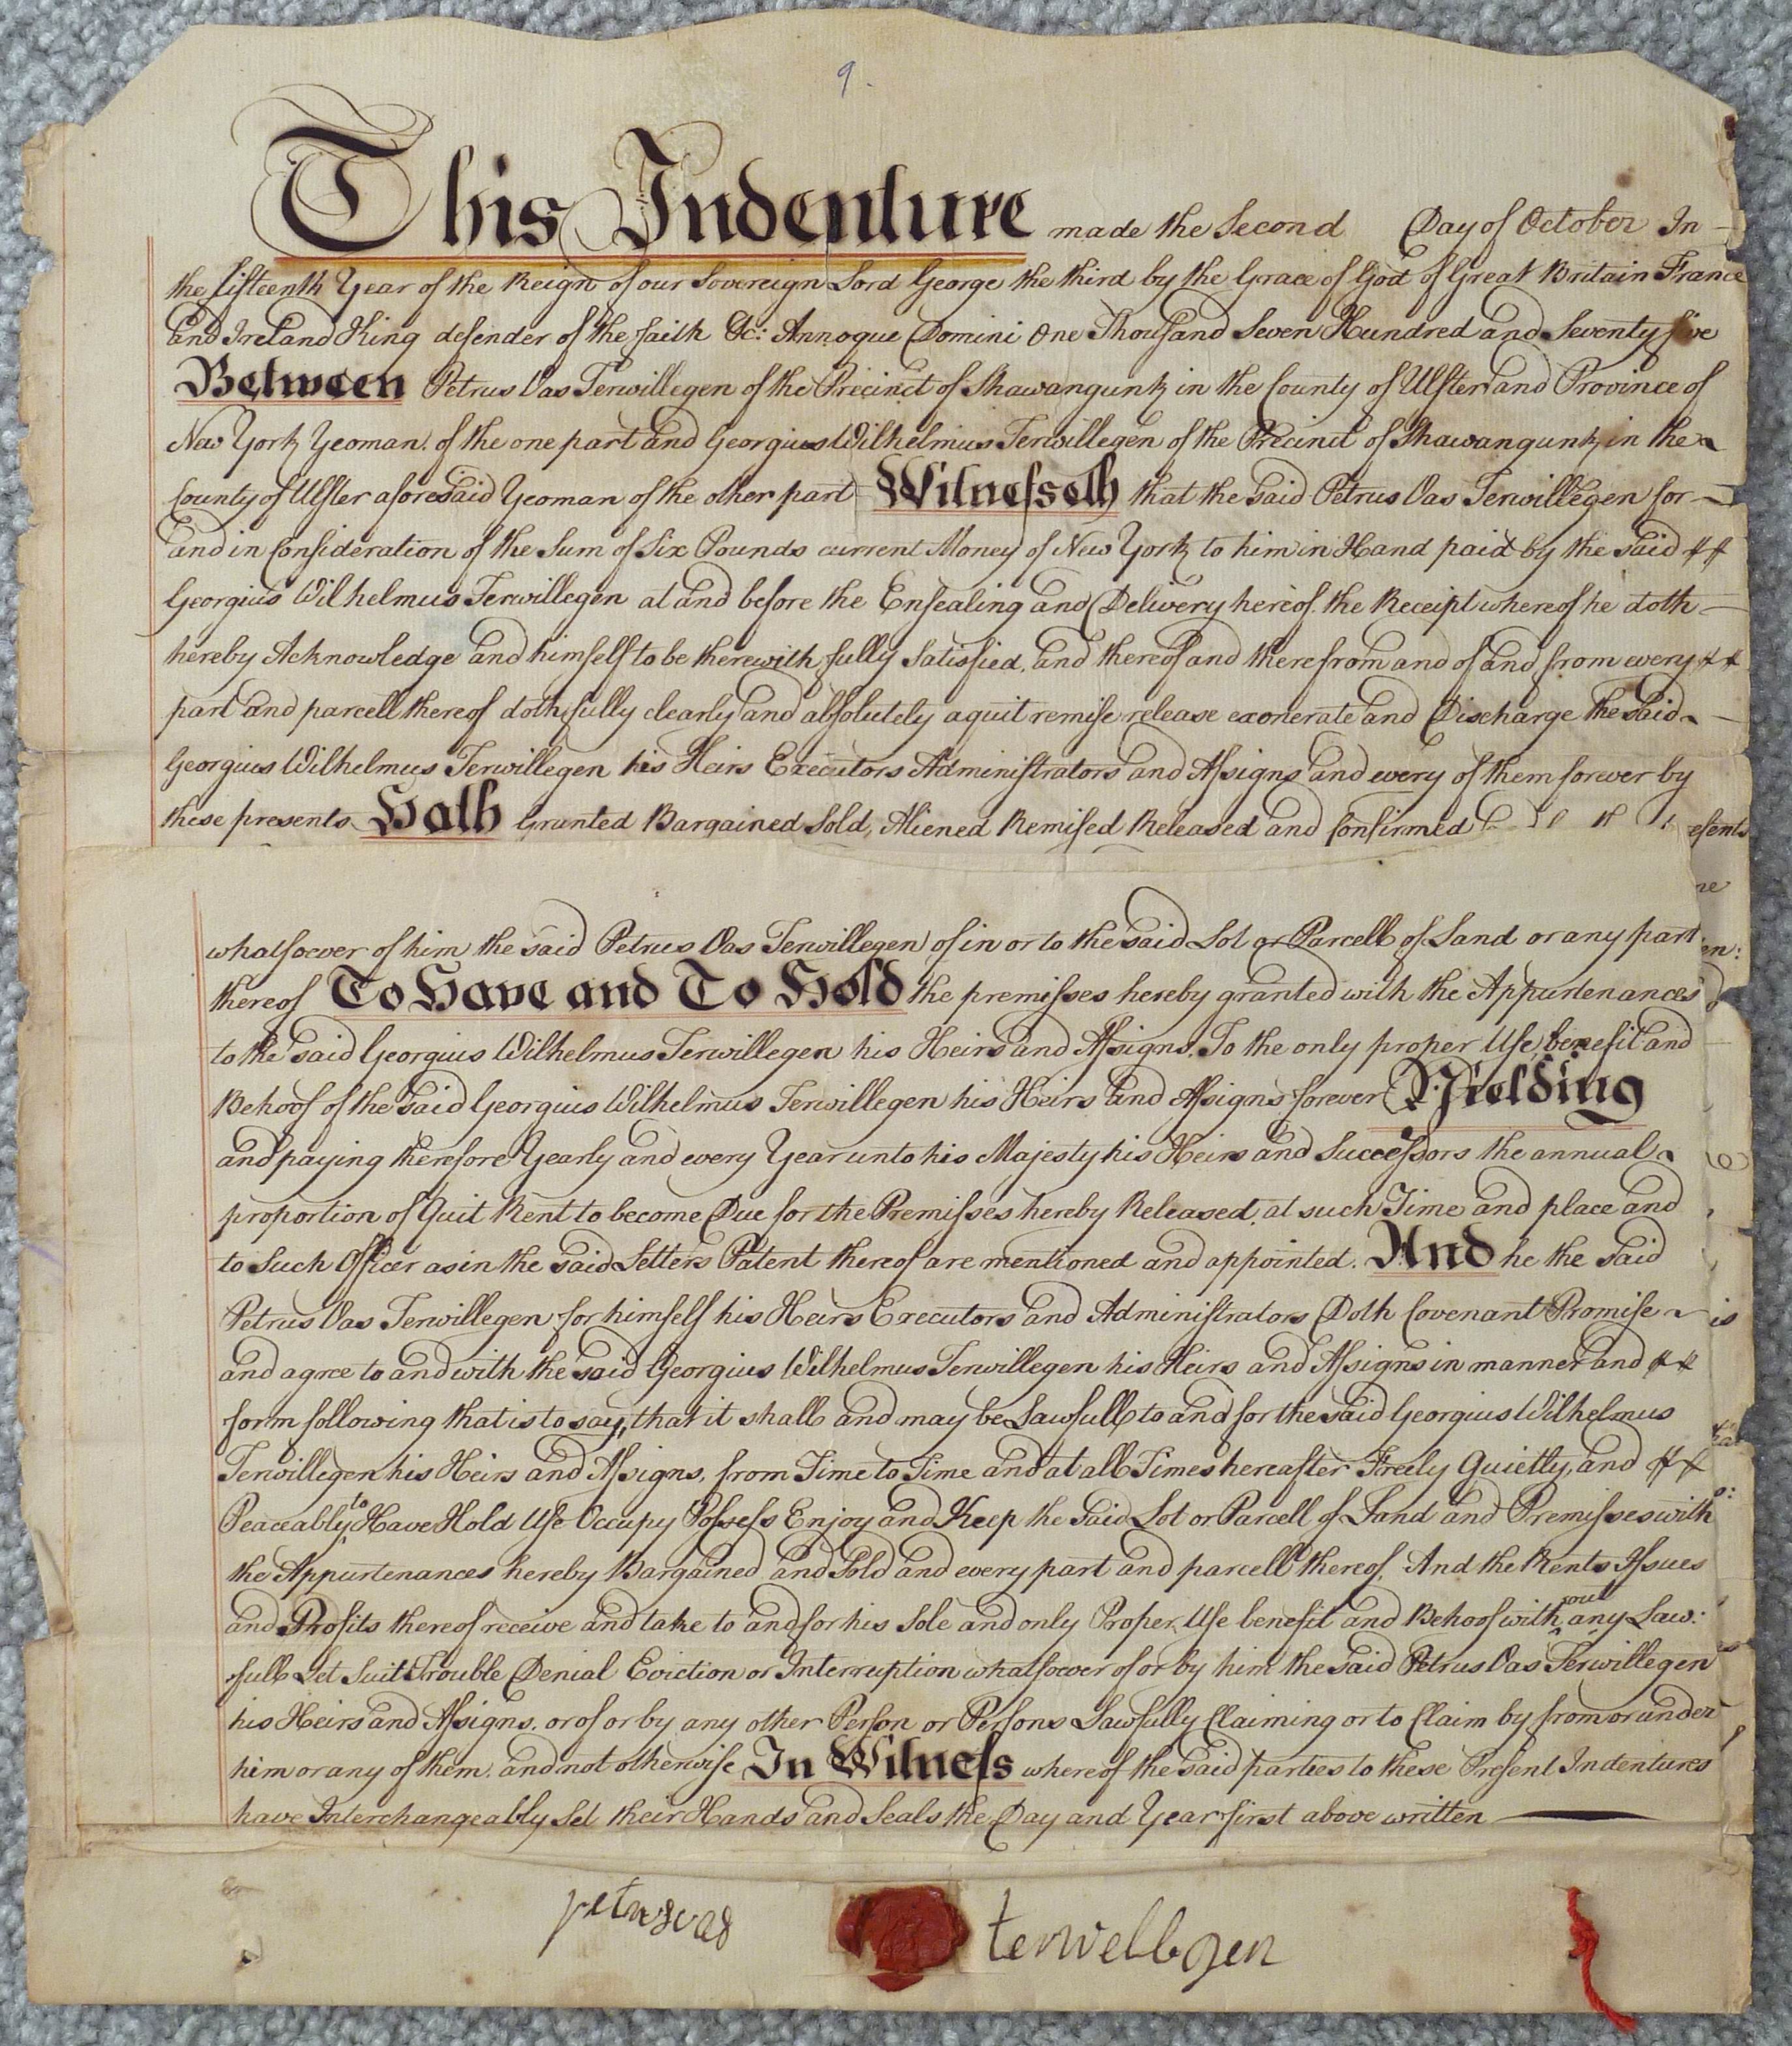 9.
This Indenture made the Second Day of October In
the fifteenth Year of the Reign of our Sovereign Lord George the third by the Grace of God of Great Britain France
and Ireland King defender of the faith &c: Annoque Domini One Thousand Seven Hundred and Seventy five
Between Petrus Vas Terwillegen of the Precinct of Shawangunk in the County of Ulster and Province of
New York Yeoman. of the one part and Georgius Wilhelmus Terwillegen of the Precinct of Shawangunk in the
County of Ulster aforesaid Yeoman of the other part Witnesseth that the said Petrus Vas Terwillegen for
and in Consideration of the Sum of Six Pounds current Money of New York to him in Hand paid by the said
Georgius Wilhelmus Terwillegen at and before the Ensealing and Delivery hereof. the Receipt whereof he doth
hereby Acknowledge and himself to be therewith fully Satisfied, and thereof and therefrom and of and from every
part and parcell thereof doth fully clearly and absolutely aquit remise release exonerate and Discharge the said
Georgius Wilhelmus Terwillegen his Heirs Executors Administrators and Assigns and every of them forever by
these presents Hath Granted Bargained Sold, Aliened Remised Released and Confirmed esents
whatsoever of him the said Petrus Vas Terwillegen of in or to the said Lot or Parcell of Land or any part
thereof To Have and To Hold the premisses hereby granted with the Appurtenances
to the said Georgius Wilhelmus Terwillegen his Heirs and Assigns. To the only proper Use, benefit and
Behoof of the said Georgius Wilhelmus Terwillegen his Heirs and Assigns forever Yielding
and paying therefore Yearly and every Year unto his Majesty his Heirs and Successors the annual
proportion of Quit Rent to become Due for the Premisses hereby Released, at such Time and place and
to Such Officer as in the said Letters Patent thereof are mentioned and appointed. And he the said
Petrus Vas Terwillegen for himself his Heirs Executors and Administrators Doth Covenant Promise
and agree to and with the said Georgius Wilhelmus Terwillegen his Heirs and Assigns in manner and
form following that is to say, that it shall and may be Lawfull to and for the said Georgius Wilhelmus
Terwillegen his Heirs and Assigns, from Time to Time and at all Times hereafter Freely Quietly, and
Peaceably to Have Hold Use Occupy Possess Enjoy and Keep the said Lot or Parcell of Land and Premisses with
the Appurtenances hereby Bargained and Sold and every part and parcell thereof, And the Rents Issues
and Profits thereof receive and take to and for his Sole and only Proper Use benefit and Behoof without any Law:
full Let Suit Trouble Denial Eviction or Interruption whatsoever of or by him the said Petrus Vas Terwillegen
his Heirs and Assigns. or of or by any other Person or Persons Lawfully Claiming or to Claim by from or under
him or any of them. and not otherwise In Witness whereof the said parties to these Present Indentures
have Interchangeably Set their Hands and Seals the Day and Year first above written
petrus vas terwellegen